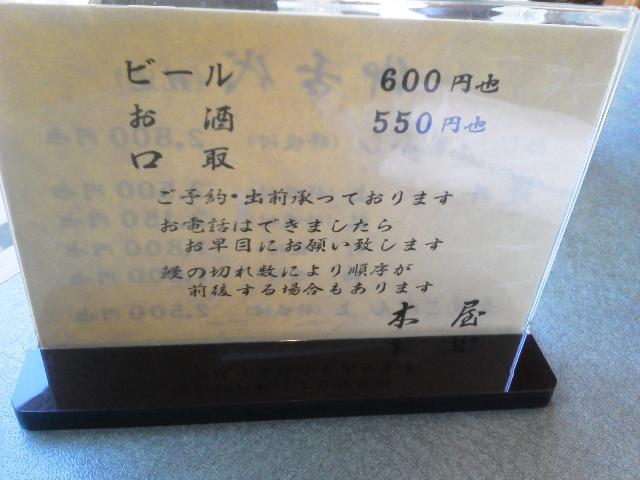 ビール 600円也
お酒 550円也
口取
ご予約・出前承っております
お電話はできましたら
お早目にお願い致します
鰻の切れ数により順序が
前後する場合もあります
木屋